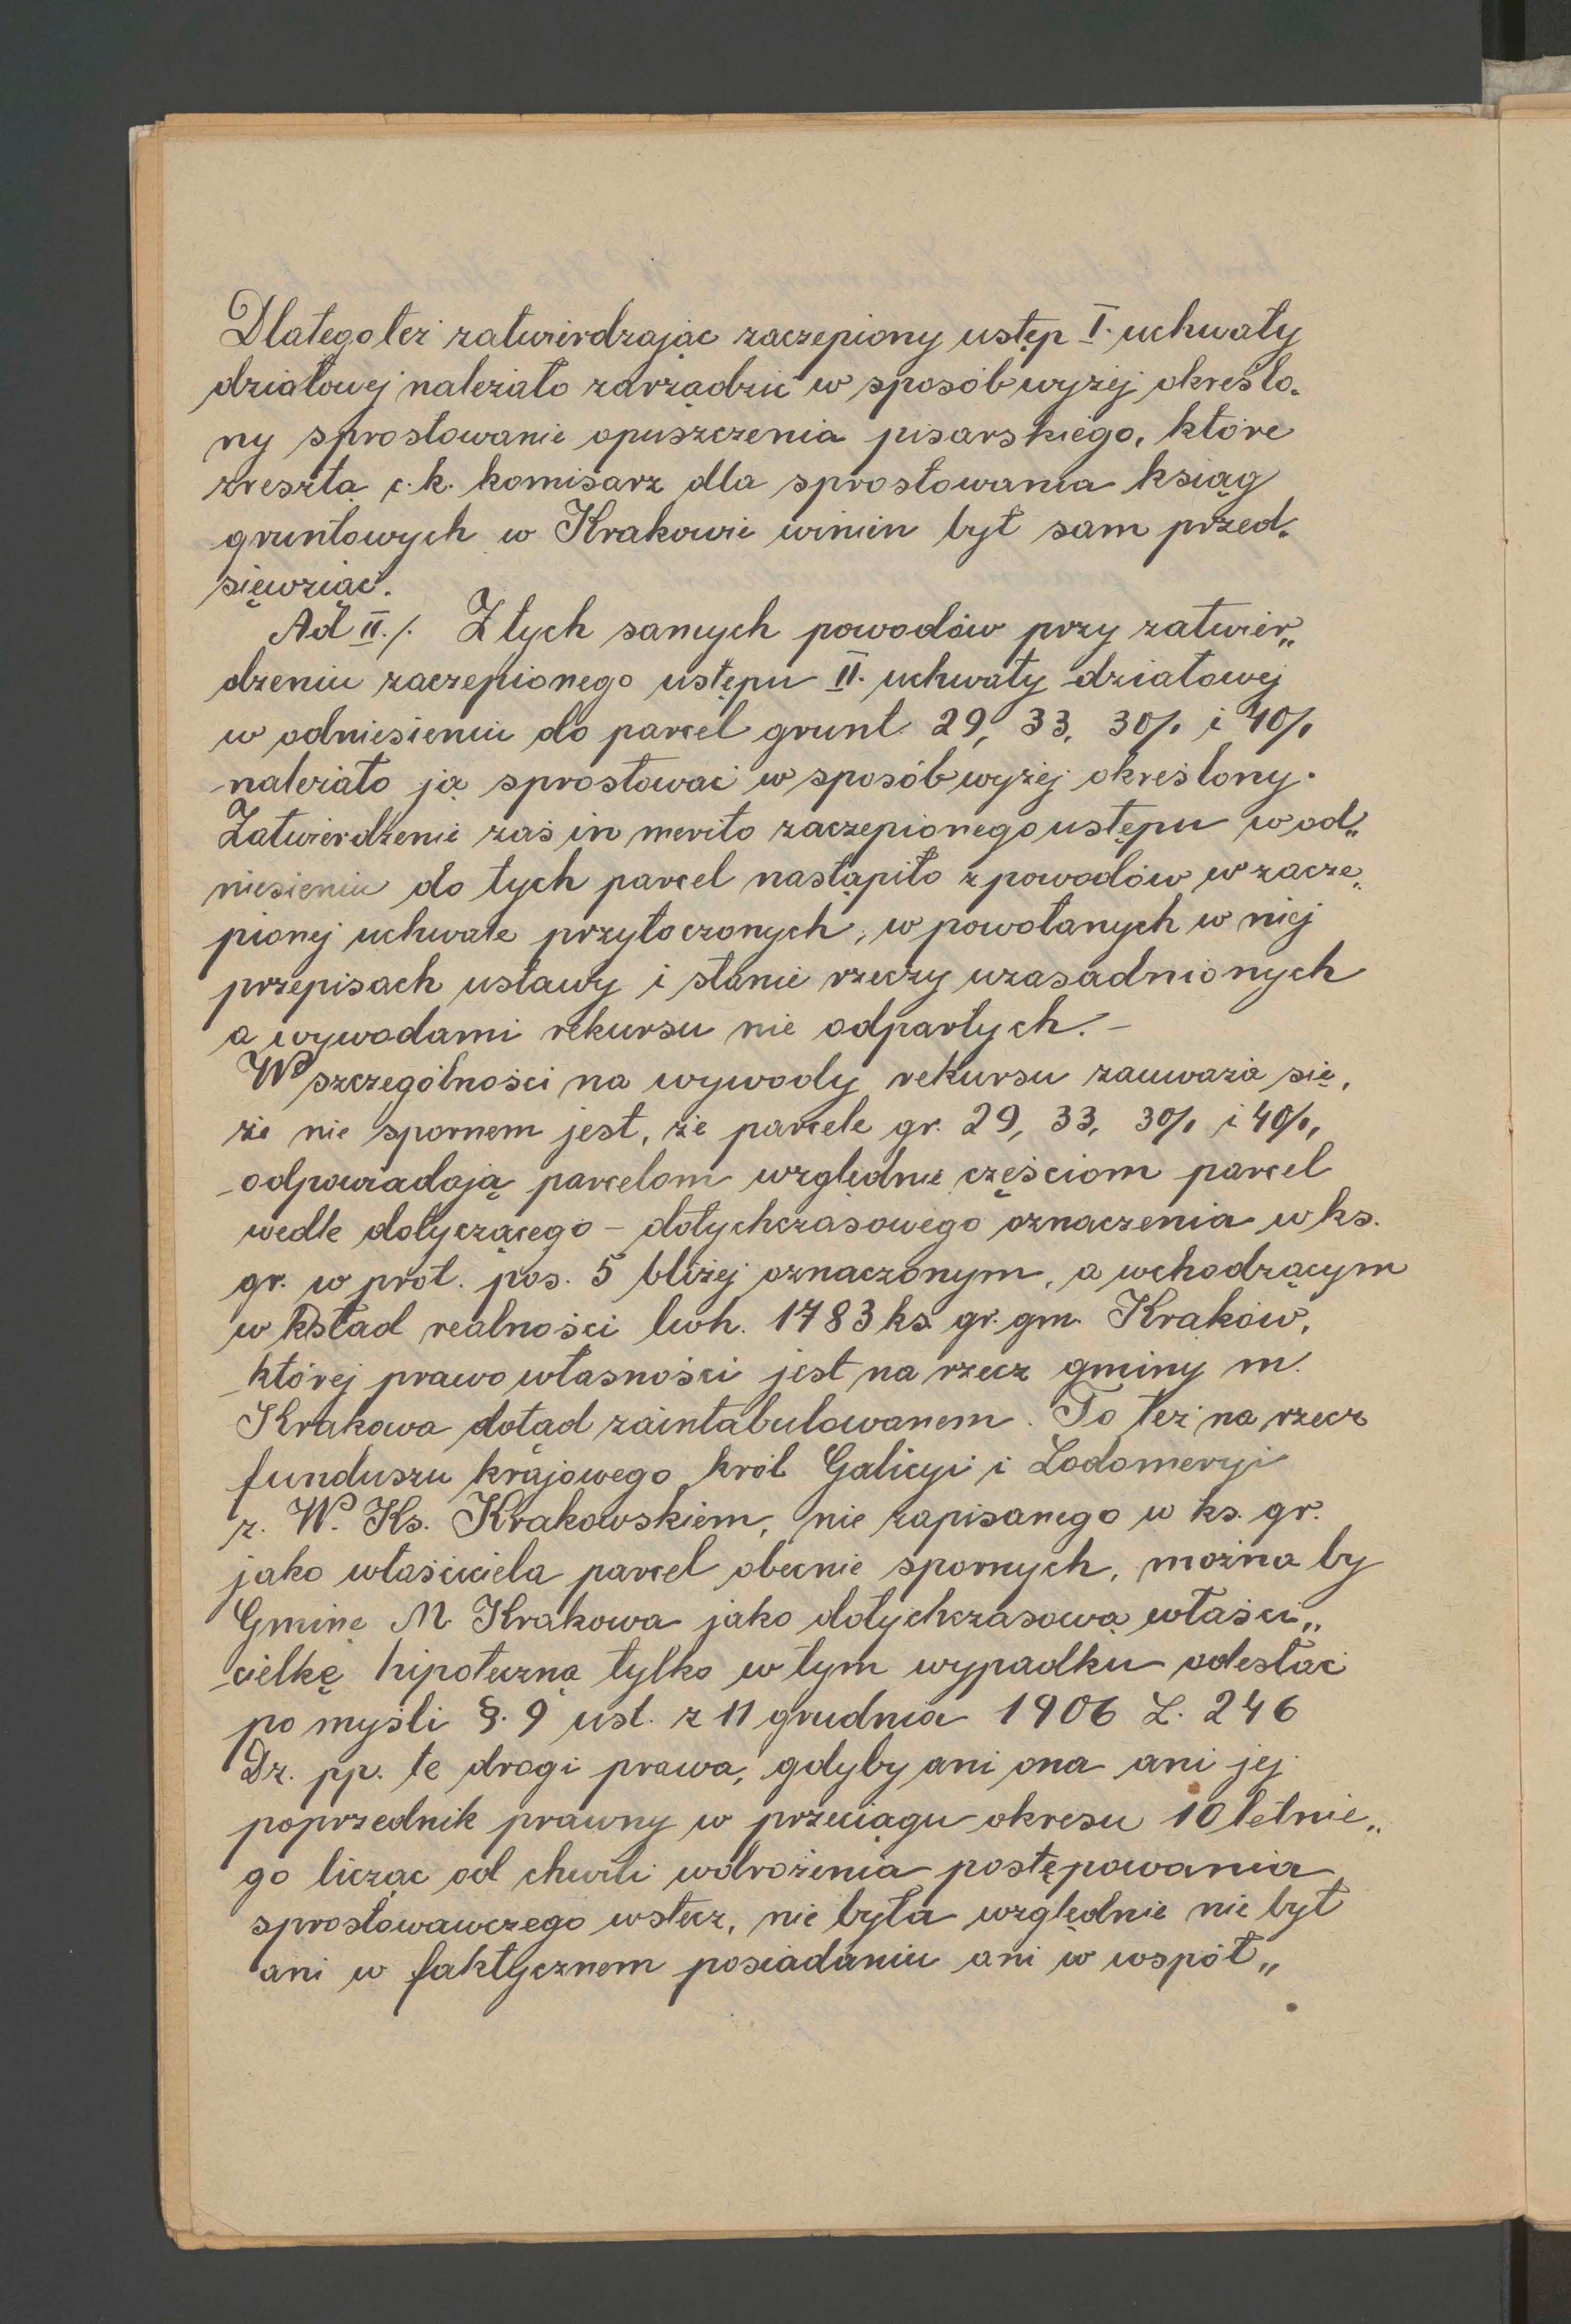 Dlatego też zatwierdzając zaczepiony ustęp I. uchwały
działowej należało zarządzić w sposób wyżej określo-
ny sprostowanie opuszczenia pisarskiego, które
zresztą c. k. komisarz dla sprostowania ksiąg
gruntowych w Krakowie winien był sam przed-
sięwziąć.
Ad II./. Z tych samych powodów przy zatwier„
dzeniu zaczepionego ustępu II. uchwały działowej
w odniesieniu do parcel grunt. 29, 33, 30/1 i 40/1
należało ją sprostować w sposób wyżej określony.
Zatwierdzenie zaś in merito zaczepionego ustępu w od„
niesieniu do tych parcel nastąpiło z powodów w zacze„
pionej uchwale przytoczonych, w powołanych w niej
przepisach ustawy i stanie rzeczy uzasadnionych
a wywodami rekursu nie odpartych. –
W szczególności na wywody rekursu zauważa się,
że nie spornem jest, że parcele gr. 29, 33, 30/1 i 40/1,
odpowiadają parcelom względnie częściom parcel
wedle dotyczącego – dotychczasowego oznaczenia w ks.
gr. w prot. pos. 5 bliżej oznaczonym, a wchodzącym
w skład realności lwh. 1783 ks. gr. gm. Kraków,
której prawo własności jest na rzecz gminy m.
Krakowa dotąd zaintabulowanem. To też na rzecz
funduszu krajowego król. Galicyi i Lodomeryi
z. W. Ks. Krakowskiem, nie zapisanego w ks. gr.
jako właściciela parcel obecnie spornych, można by
Gminę M. Krakowa jako dotychczasową właści„
cielkę hipoteczną tylko w tym wypadku odesłać
po myśli §. 9 ust. z 11 grudnia 1906 L. 246
Dz. pp. te drogi prawa, gdyby ani ona ani jej
poprzednik prawny w przeciągu okresu 10 letnie„
go licząc od chwili wdrożenia postępowania
sprostowawczego wstecz, nie była względnie nie był
ani w faktycznem posiadaniu ani w współ„